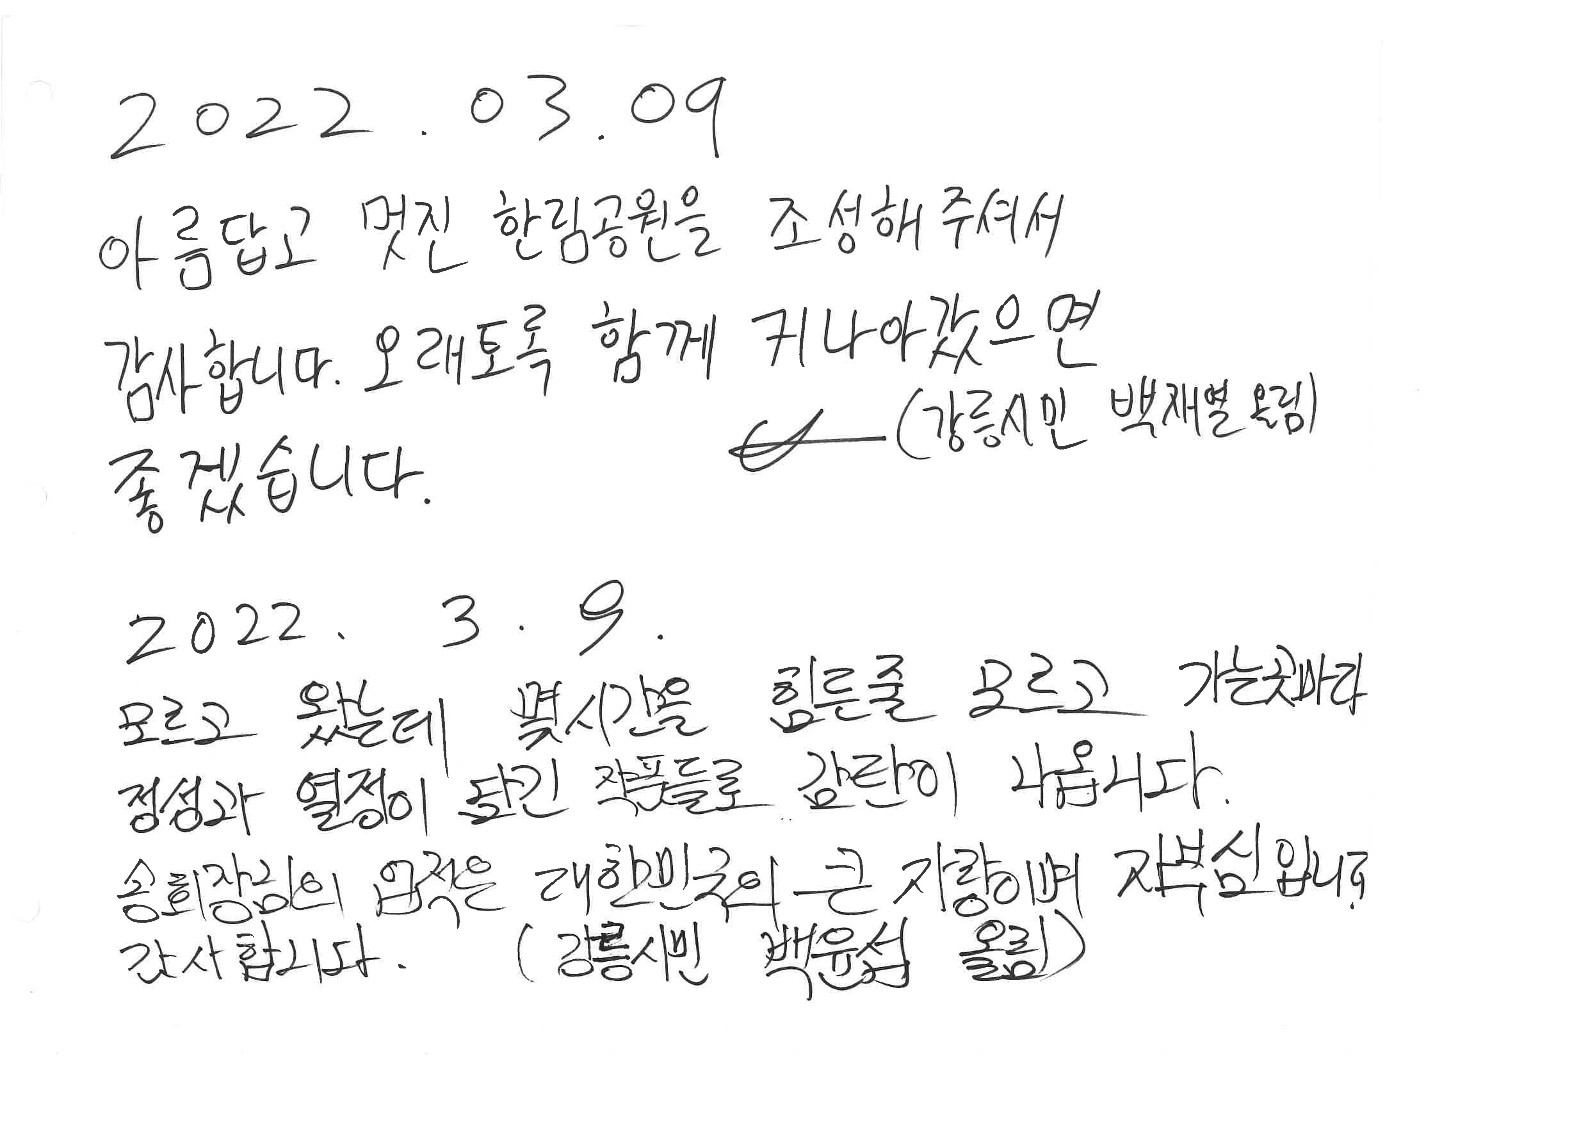 2022. 03. 09
아름답고 멋진 한림공원을 조성해주셔서
감사합니다. 오래토록 함께 커나아갔으면
(강릉시민 백재열 올림)
좋겠습니다.
2022. 3. 9.
모르고 왔는데 몇시간을 힘든줄 모르고 가는곳마다
정성과 열정이 담긴 작품들로 감탄이 나옵니다.
송회장님의 업적은 대한민국의 큰 자랑이며 자부심입니다
감사합니다. (강릉시민 백윤섭 올림)